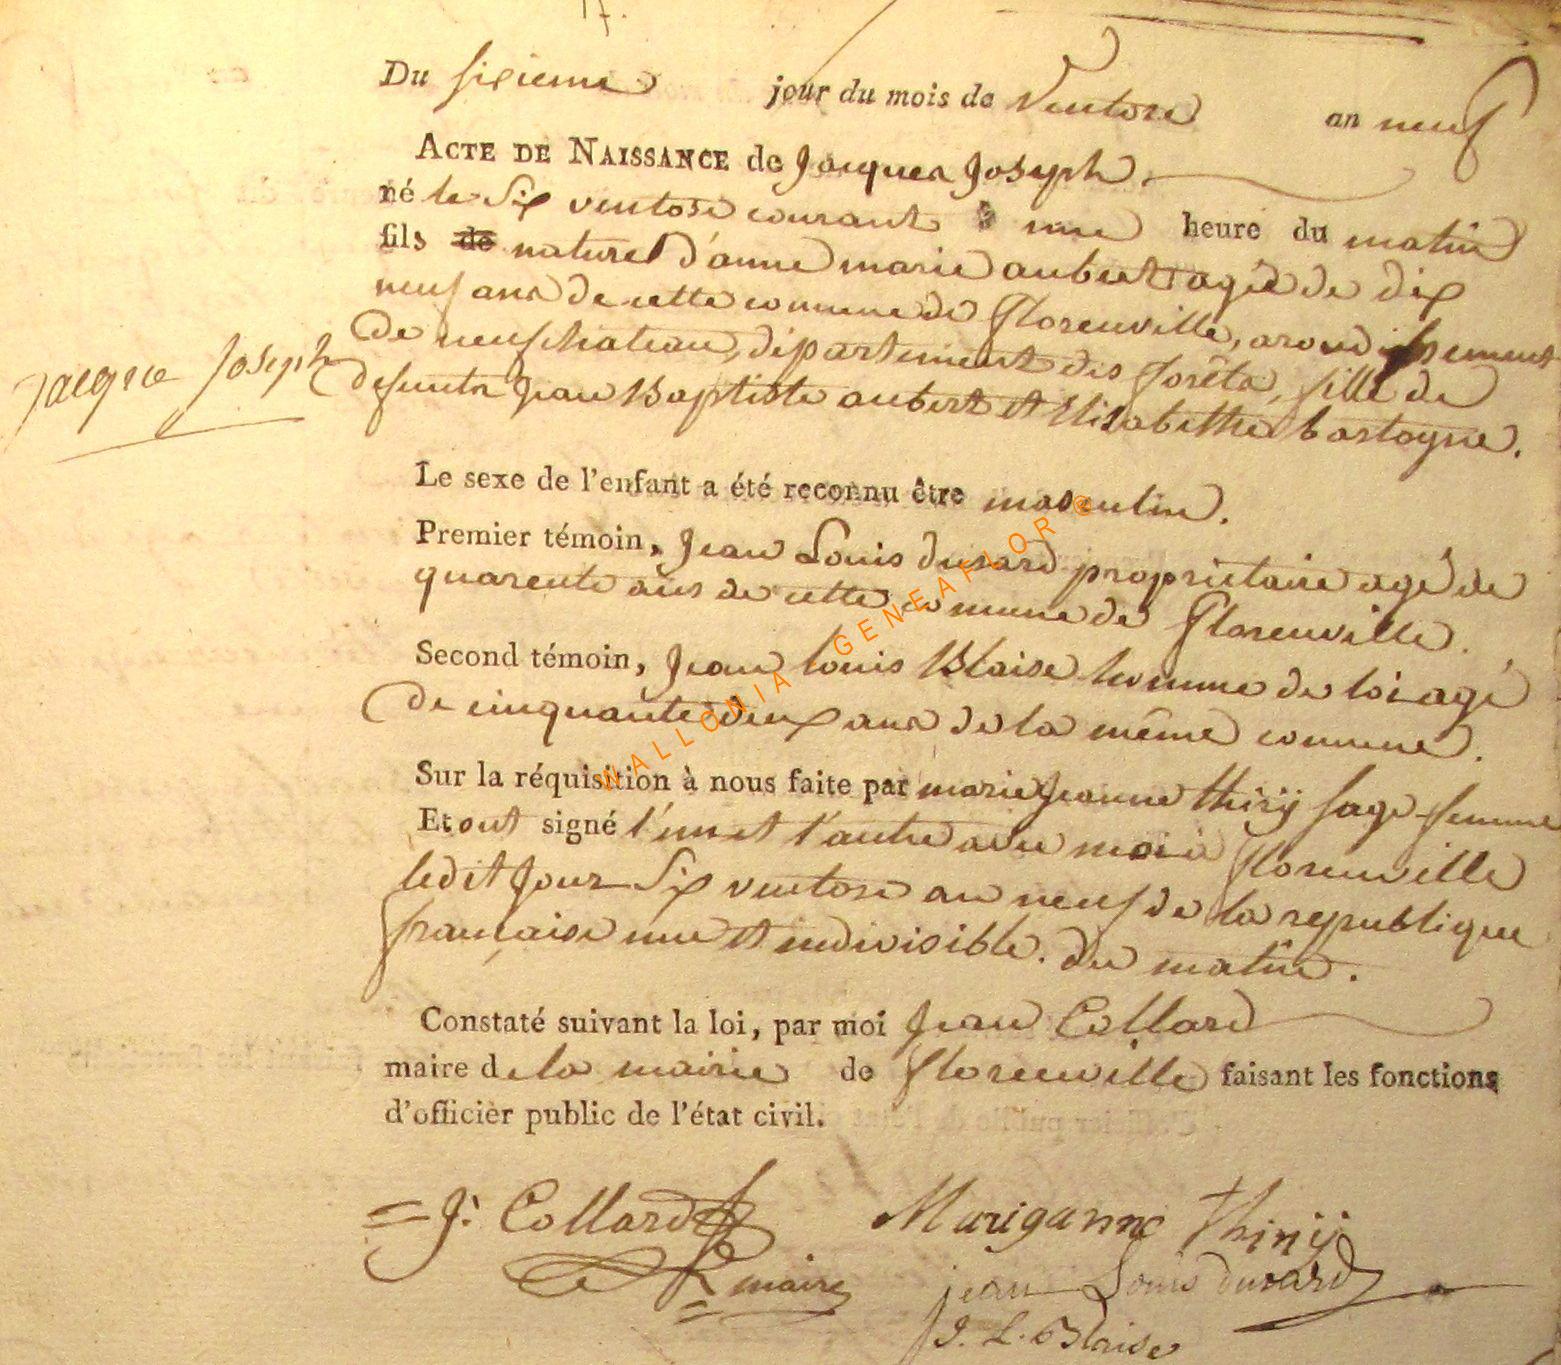 17.
Du sixieme jour du mois de Ventose an neuf
ACTE DE NAISSANCE de Jacques Joseph.
né le Six ventose courant à une heure du matin
fils de naturel d'anne marie aubert agée de dix
neuf ans de cette commune de florenville, arondissement
de neufchateau, département des forêts, fille de
defunts Jean Baptiste aubert et Elisabethe bastogne.
jacque Joseph
Le sexe de l'enfant a été reconnu être masculin.
Premier témoin, Jean Louis dusard propriétaire agé de
quarente ans de cette commune de florenville.
Second témoin, Jean louis Blaise homme de loi agé
de cinquante deux ans de la même commune.
Sur la réquisition à nous faite par marie Jeanne thirÿ sage-femme
Et ont signé l'un et l'autre avec moi à florenville
ledit Jour Six ventose an neuf de la republique
française une et indivisible. du matin.
Constaté suivant la loi, par moi Jean Collard
maire de la mairie de florenville faisant les fonctions
d'officier public de l'état civil.
J: Collard
maire
Mariganne Thirÿ
jean Louis dusard
J. L. Blaise
WALLONIA GENEAFLOR ©